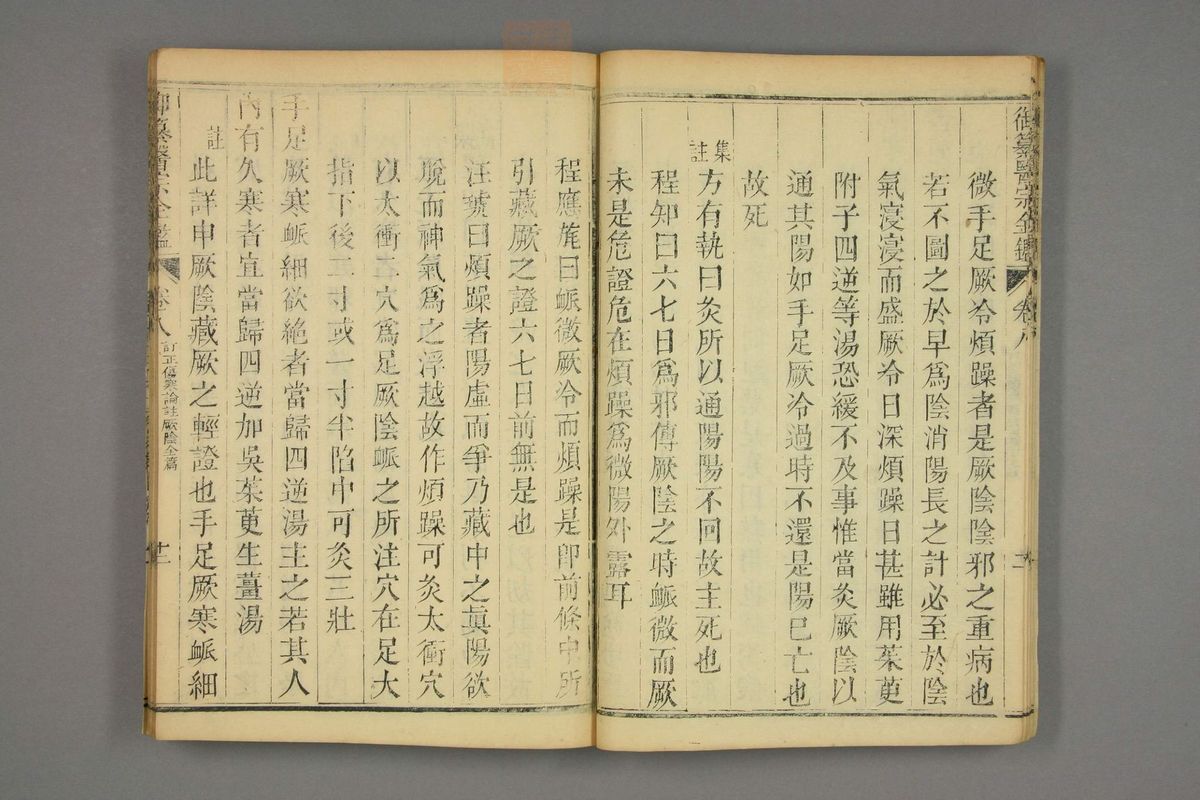 御纂醫宗金鑑 卷八
微手足厥冷煩躁者是厥陰陰邪之重病也
若不圖之於早爲陰消陽長之計必至於陰
氣寖寖而盛厥冷日深煩躁日甚雖用茱萸
附子四逆等湯恐緩不及事惟當灸厥陰以
通其陽如手足厥冷過時不還是陽已亡也
故死
集註
方有執曰灸所以通陽陽不回故主死也
程知曰六七日爲邪傳厥陰之時脈微而厥
未是危證危在煩躁爲微陽外露耳
程應旄曰脈微厥冷而煩躁是卽前條中所
引藏厥之證六七日前無是也
汪琥曰煩躁者陽虛而爭乃藏中之眞陽欲
脫而神氣爲之浮越故作煩躁可灸太衝穴
以太衝二穴爲足厥陰脈之所注穴在足大
指下後二寸或一寸半陷中可灸三壯
手足厥寒脈細欲絕者當歸四逆湯主之若其人
內有久寒者宜當歸四逆加吳茱萸生薑湯
註
此詳申厥陰藏厥之輕證也手足厥寒脈細
御纂醫宗金鑑 卷八 訂正傷寒論註厥陰全篇 廿二